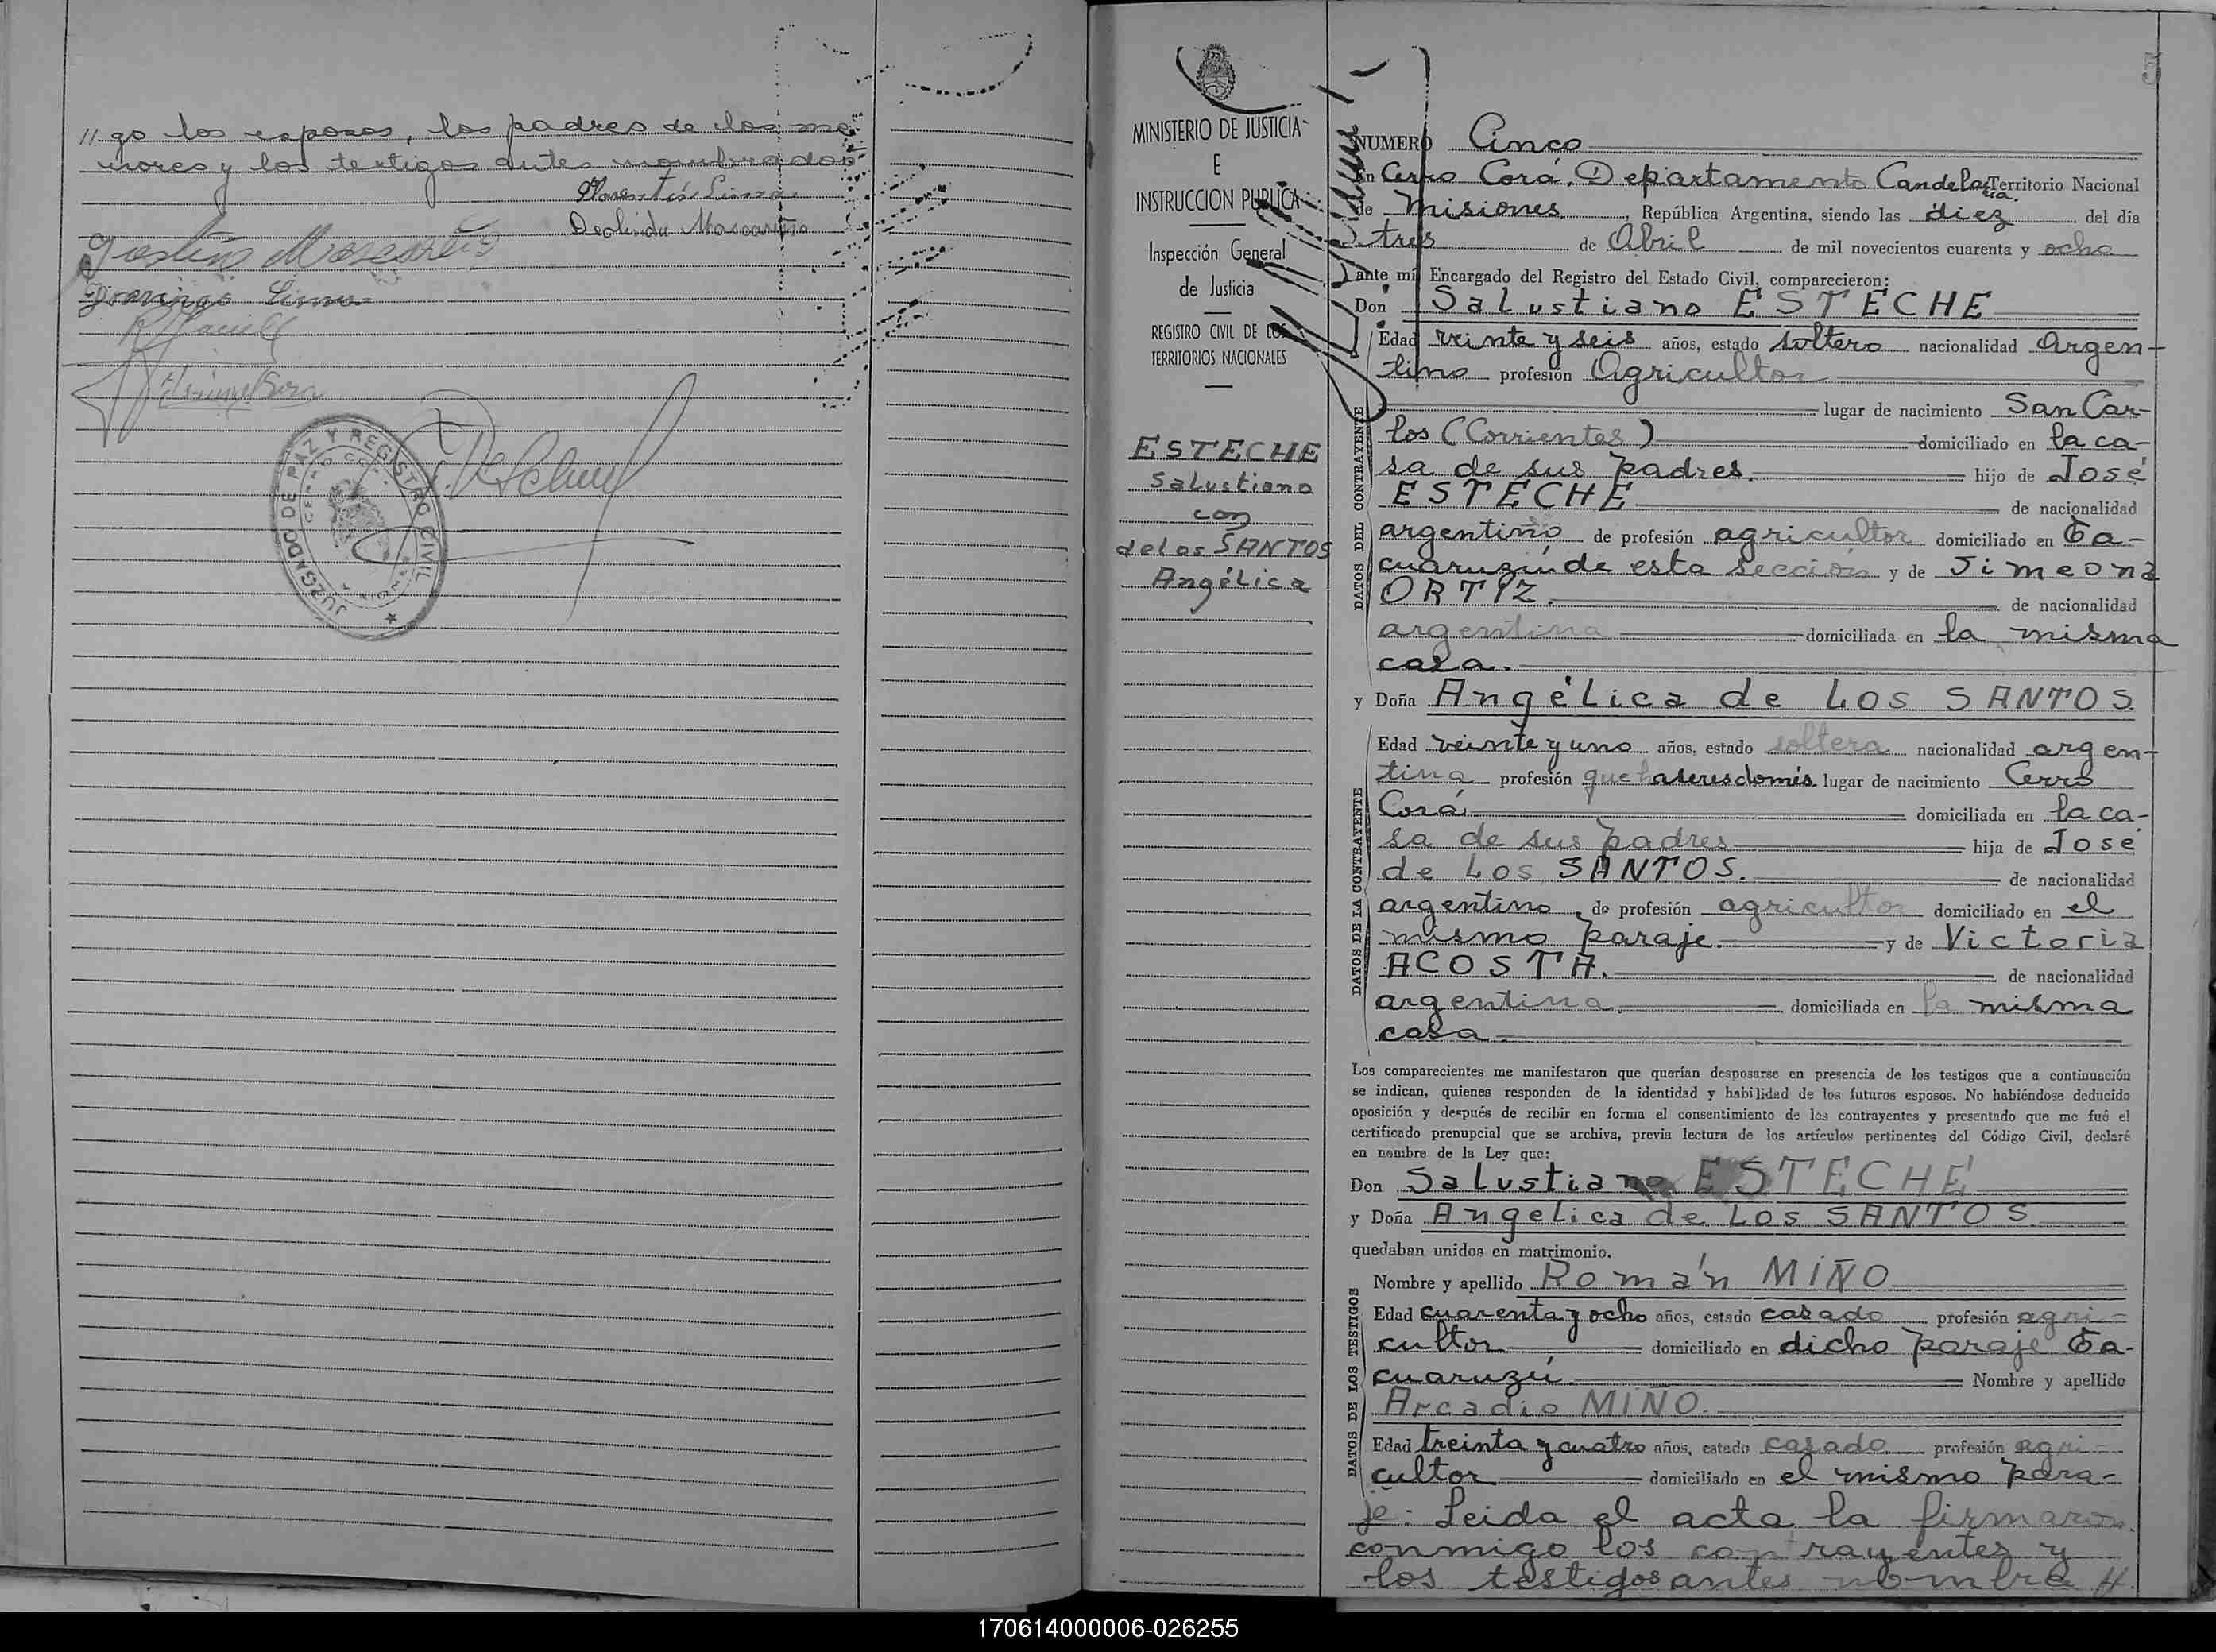 //go los esposos, los padres de los me
nores y los testigos antes nombrados
Florentín Lima
Deolinda Mascareño
Domingo Lima
JUZGADO DE PAZ Y REGISTRO CIVIL
CERRO CORÁ
MINISTERIO DE JUSTICIA
E
INSTRUCCION PUBLICA
Inspección General
de Justicia
REGISTRO CIVIL DE LOS
TERRITORIOS NACIONALES
ESTECHE
Salustiano
con
de los SANTOS
Angélica
NUMERO Cinco
En Cerro Corá, Departamento Candelaria Territorio Nacional
de Misiones, República Argentina, siendo las diez del día
tres de Abril de mil novecientos cuarenta y ocho
ante mí Encargado del Registro del Estado Civil, comparecieron:
Don Salustiano ESTECHE
DATOS DEL CONTRAYENTE
Edad veinte y seis años, estado soltero nacionalidad Argen-
tino profesión Agricultor
lugar de nacimiento San Car-
los (Corrientes) domiciliado en la ca-
sa de sus padres. hijo de José
ESTECHE de nacionalidad
argentino de profesión agricultor domiciliado en Ta-
cuaruzú de esta sección y de Simeona
ORTIZ. de nacionalidad
argentina domiciliada en la misma
casa.
y Doña Angélica de Los SANTOS
DATOS DE LA CONTRAYENTE
Edad veinte y uno años, estado soltera nacionalidad argen-
tina profesión que haseres domés. lugar de nacimiento Cerro
Corá domiciliada en la ca-
sa de sus padres hija de José
de Los SANTOS. de nacionalidad
argentino de profesión agricultor domiciliado en el
mismo paraje. y de Victoria
ACOSTA. de nacionalidad
argentina. domiciliada en la misma
casa.
Los comparecientes me manifestaron que querían desposarse en presencia de los testigos que a continuación
se indican, quienes responden de la identidad y habilidad de los futuros esposos. No habiéndose deducido
oposición y después de recibir en forma el consentimiento de los contrayentes y presentado que me fué el
certificado prenupcial que se archiva, previa lectura de los artículos pertinentes del Código Civil, declaré
en nombre de la Ley que:
Don Salustiano ESTECHE
y Doña Angelica de Los SANTOS
quedaban unidos en matrimonio.
DATOS DE LOS TESTIGOS
Nombre y apellido Román MIÑO
Edad cuarenta y ocho años, estado casado profesión agri-
cultor domiciliado en dicho paraje Ta-
cuaruzú. Nombre y apellido
Arcadio MIÑO.
Edad treinta y cuatro años, estado casado profesión agri-
cultor domiciliado en el mismo para-
je. Leida el acta la firmaron
conmigo los contrayentes y
los testigos antes nombra //
170614000006-026255